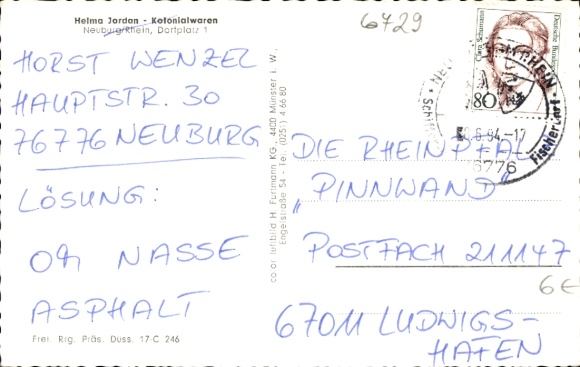 Helma Jordan - Kolonialwaren
Neuburg/Rhein, Dorfplatz 1
HORST WENZEL
HAUPTSTR. 30
76776 NEUBURG
LÖSUNG:
NASSE
ASPHALT
Frei. Rrg. Präs. Duss. 17-C 246
color luftbild H. Futtmann KG., 4400 Münster i. W.
Engelstraße 54 - Tel. (0251) 4 66 80
6729
Clara Schumann
Deutsche Bundespost
80
6.94.-17
6776
Fischerdorf
DIE RHEINPFALZ
"PINNWAND"
POSTFACH 211147
67011 LUDWIGS-
HAFEN
6€